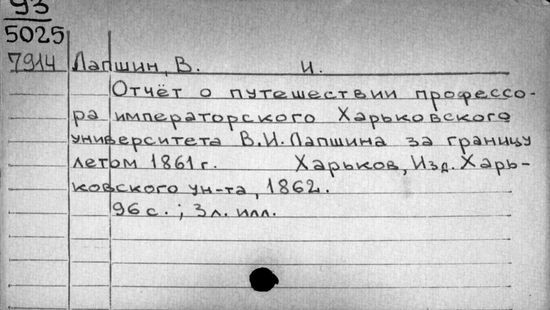 93
5025
7914 Лапшин, В. И.
Отчёт о путешествии профессо-
ра императорского Харьковского
университета В.И.Лапшина за границу
летом 1861 г. Харьков, Изд. Харь-
ковского ун-та, 1862.
96 с. ; 3 л. илл.